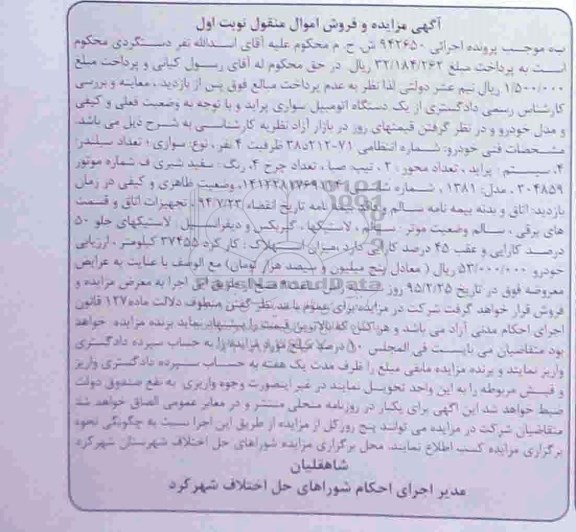 آگهی مزایده و فروش اموال منقول نوبت اول
به موجب پرونده اجرائی ۹۴۲۶۵۰ ش. ح. م محکوم علیه آقای اسدالله نفر دستگردی محکوم
است به پرداخت مبلغ ۳۲/۱۸۴/۲۶۲ ریال در حق محکوم له آقای رسول کیانی و پرداخت مبلغ
۱/۵۰۰/۰۰۰ ریال نیم عشر دولتی لذا نظر به عدم پرداخت مبالغ فوق پس از بازدید، معاینه و بررسی
کارشناس رسمی دادگستری از یک دستگاه اتومبیل سواری پراید و با توجه به وضعیت فعلی و کیفی
و مدل خودرو و در نظر گرفتن قیمتهای روز در بازار آزاد نظریه کارشناسی به شرح ذیل می باشد.
مشخصات فنی خودرو: شماره انتظامی ۷۱-۲۱۲د۳۸ ظرفیت ۴ نفر، نوع: سواری؛ تعداد سیلندر:
۴، سیستم: پراید، تعداد محور: ۲، تیپ: صبا، تعداد چرخ ۴، رنگ: سفید شیری ف شماره موتور
۳۰۴۸۵۹، مدل: ۱۳۸۱، شماره وضعیت ظاهری و کیفی در زمان
بازدید: اتاق و بدنه بیمه نامه سالم و بیمه نامه تاریخ انقضاء ۹۴/۷/۲۳، تجهیزات اتاق و قسمت
های برقی، سالم وضعیت موتور: سالم، لاستیکها، گیربکس و دیفرانسیل: لاستیکهای جلو ۵۰
درصد کارایی و عقب ۴۵ درصد کارایی دارد میزان استهلاک: کارکرد ۳۷۴۵۵ کیلومتر، ارزیابی
خودرو ۵۳/۰۰۰/۰۰۰ ریال (معادل پنج میلیون و سیصد هزار تومان) مع الوصف با عنایت به عرایض
معروضه فوق در تاریخ ۹۵/۲/۲۵ روز اجرا به معرض مزایده و
فروش قرار خواهد گرفت شرکت در مزایده برای عموم با مد نظر گرفتن منطوف دلالت ماده ۱۲۷ قانون
اجرای احکام مدنی آزاد می باشد و هر کس که بالاترین قیمت را پیشنهاد نماید برنده مزایده خواهد
بود متقاضیان می بایست فی المجلس ۱۰ درصد مبلغ مورد مزایده را به حساب سپرده دادگستری
واریز نمایند و برنده مزایده مابقی مبلغ را ظرف مدت یک هفته به حساب سپرده دادگستری واریز
و فیش مربوطه را به این واحد تحویل نمایند در غیر اینصورت وجوه واریزی به نفع صندوق دولت
ضبط خواهد شد این آگهی برای یکبار در روزنامه محلی منتشر و در معابر عمومی الصاق خواهد شد
متقاضیان شرکت در مزایده می توانند پنج روز قبل از مزایده از طریق این اجرا نسبت به چگونگی نحوه
برگزاری مزایده کسب اطلاع نمایند. محل برگزاری مزایده شوراهای حل اختلاف شهرستان شهرکرد
شاهقلیان
مدیر اجرای احکام شوراهای حل اختلاف شهرکرد